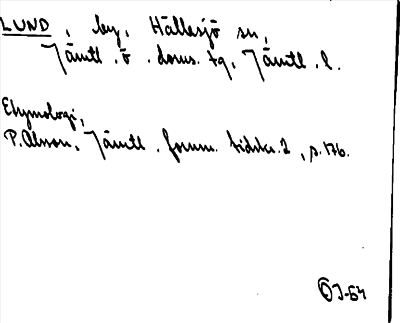 LUND, by, Hällesjö sn,
Jämtl. ö. doms. tg, Jämtl. l.
Etymologi;
P. Olsson, Jämtl. fornm. tidskr. 2, s. 176.
ÖJ-64